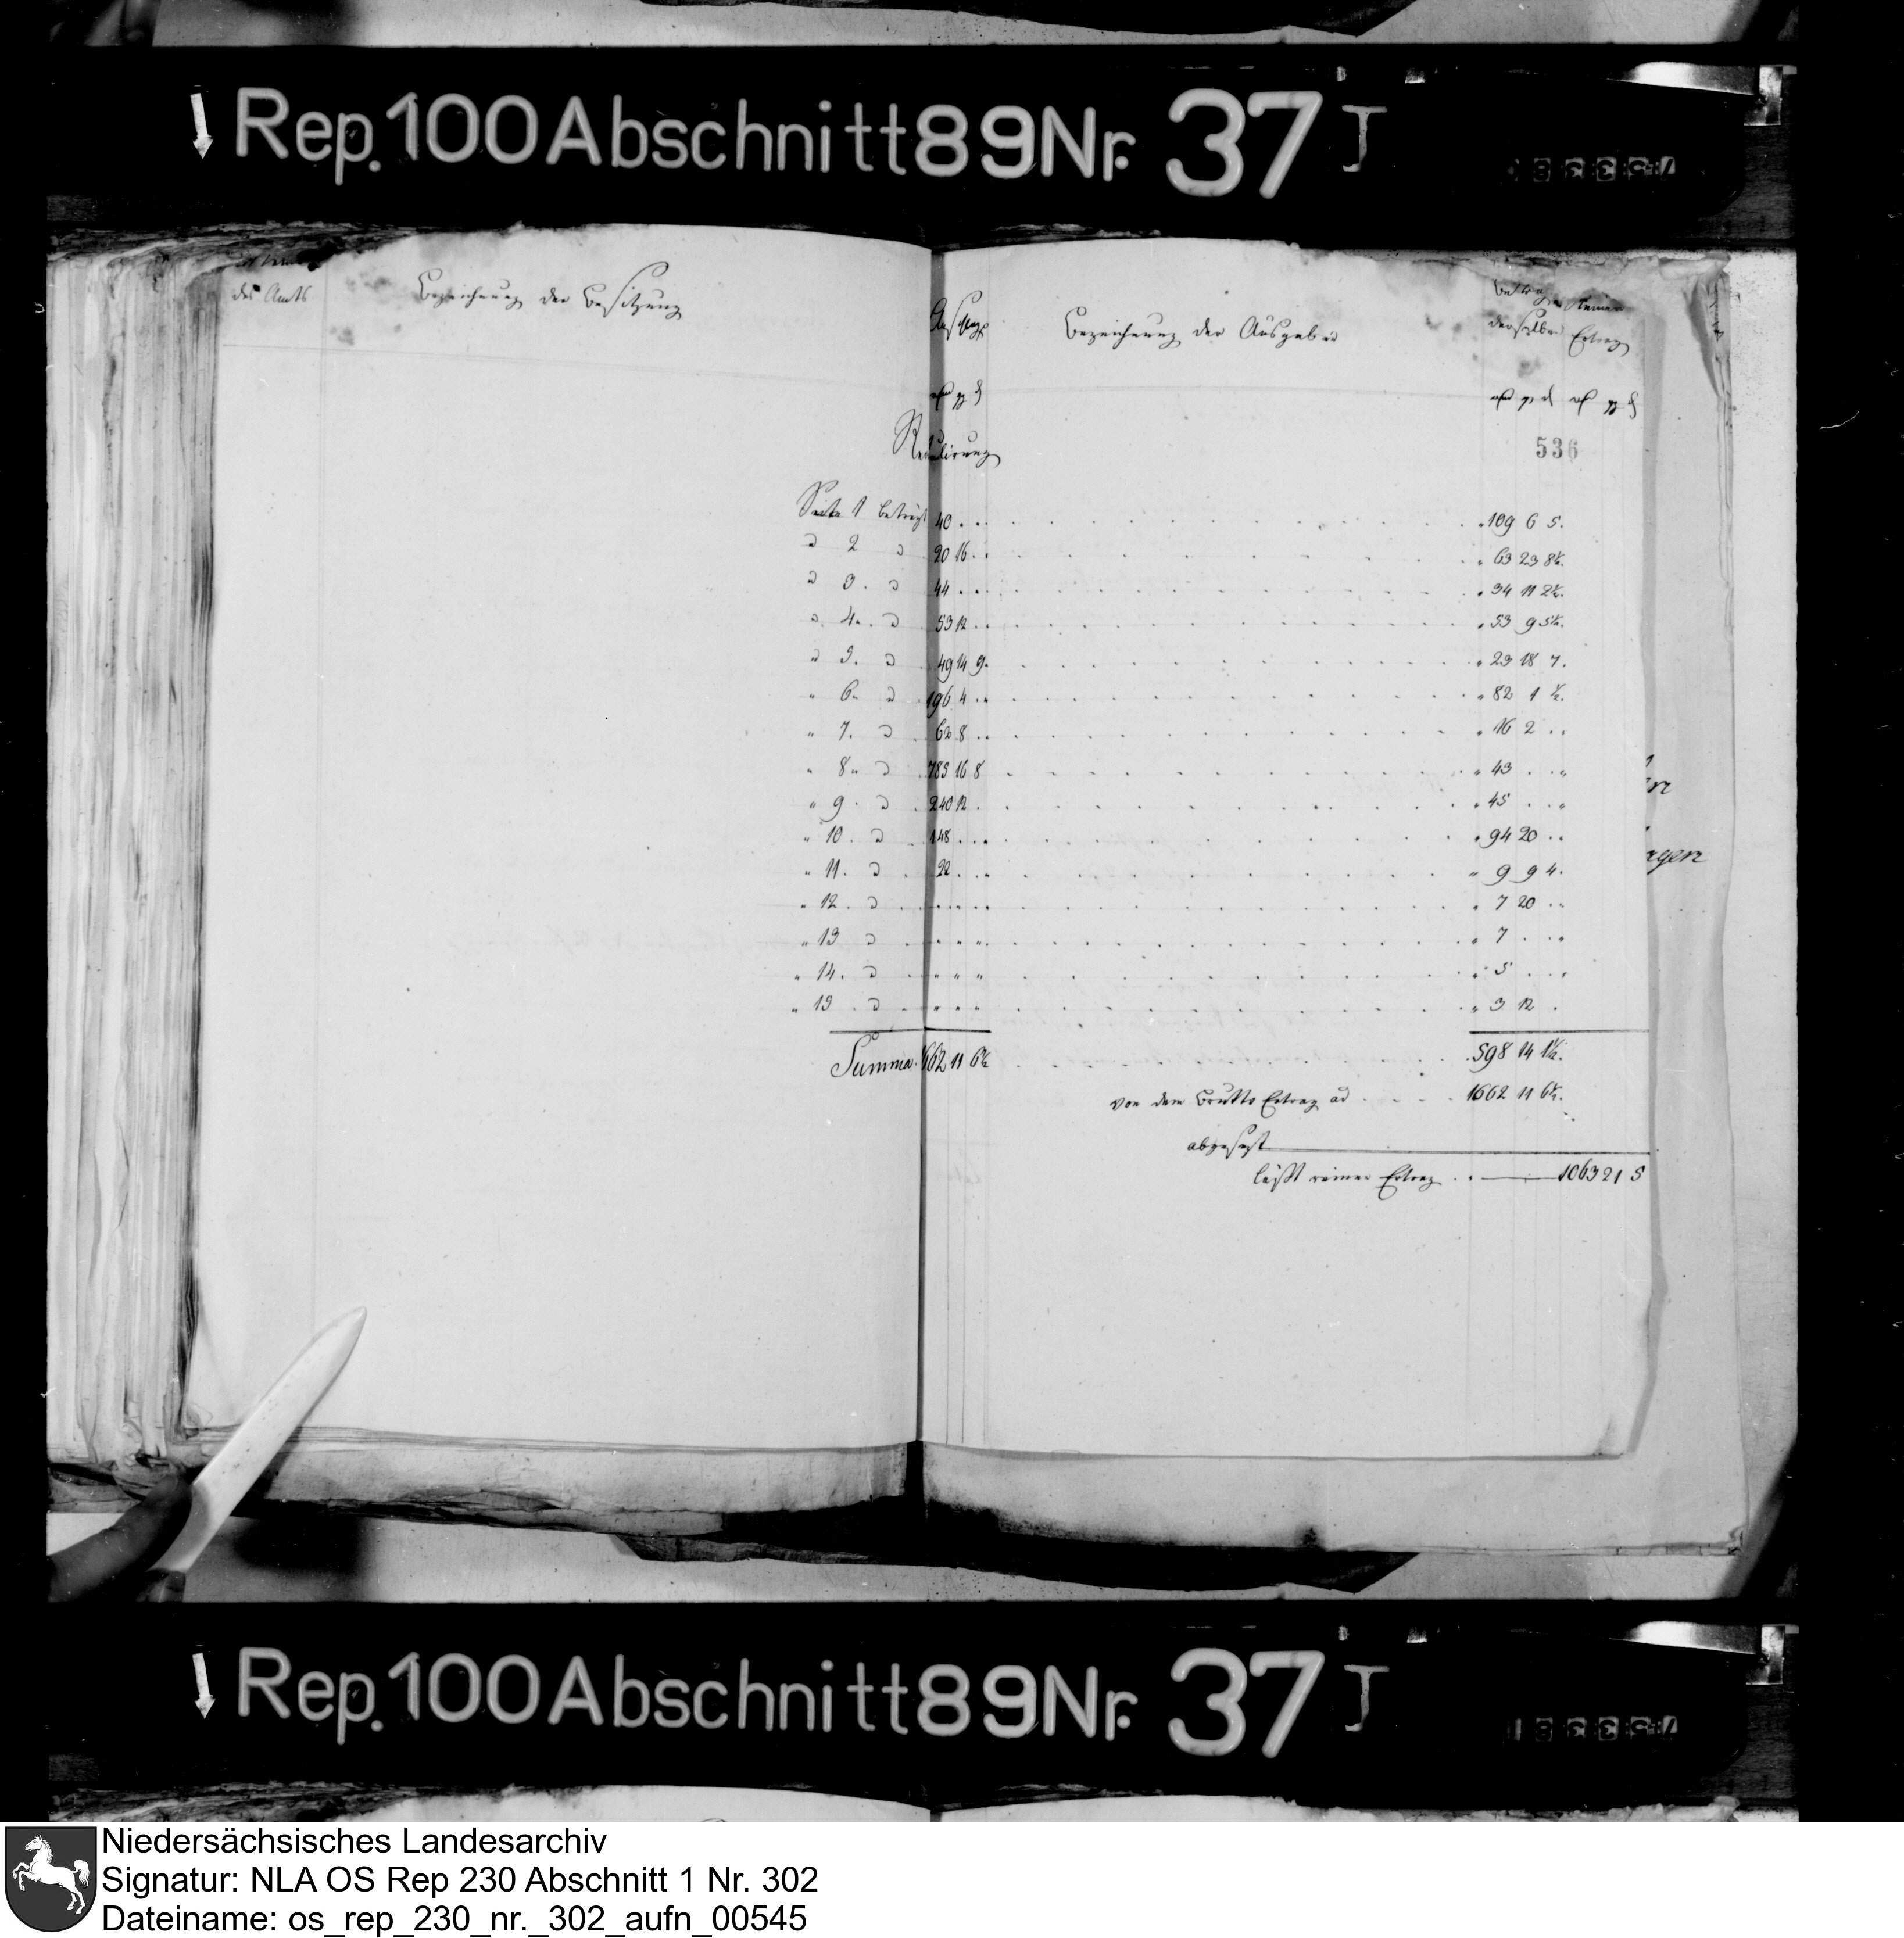 Rep. 100 Abschnitt 89 Nr. 37 J
des Amts
Bezeichnung der Besitzung
Bezeichnung der Ausgaben
Betrag derselben
Reiner Ertrag
536
Seite 1 beträgt 40 . . . 109 6 5.
" 2 " 20 16 . . 63 23 8½.
" 3. " 44 . . . 34 11 2½.
" 4. " 53 12 . . 53 9 5½.
" 5. " 49 14 9. 23 18 7.
" 6. " 196 4 . . 82 1 ½.
" 7. " 62 8 . . 16 2 . .
" 8. " 785 16 8 43 . . .
" 9. " 240 12 . 45 . . .
" 10. " 148 . . . 94 20 . .
" 11. " 22 . . . 9 9 4.
" 12. " . . . . 7 20 . .
" 13 " . . . . 7 . . .
" 14. " . . . . 5 . . .
" 15. " . . . . 3 12 .
Summa. 1662 11 6½ 598 14 1½.
von dem Brutto Ertrag ad 1662 11 6½.
abgesetzt
läßt reinen Ertrag 1063 21 5
Rep. 100 Abschnitt 89 Nr. 37 J
Niedersächsisches Landesarchiv
Signatur: NLA OS Rep 230 Abschnitt 1 Nr. 302
Dateiname: os_rep_230_nr._302_aufn_00545